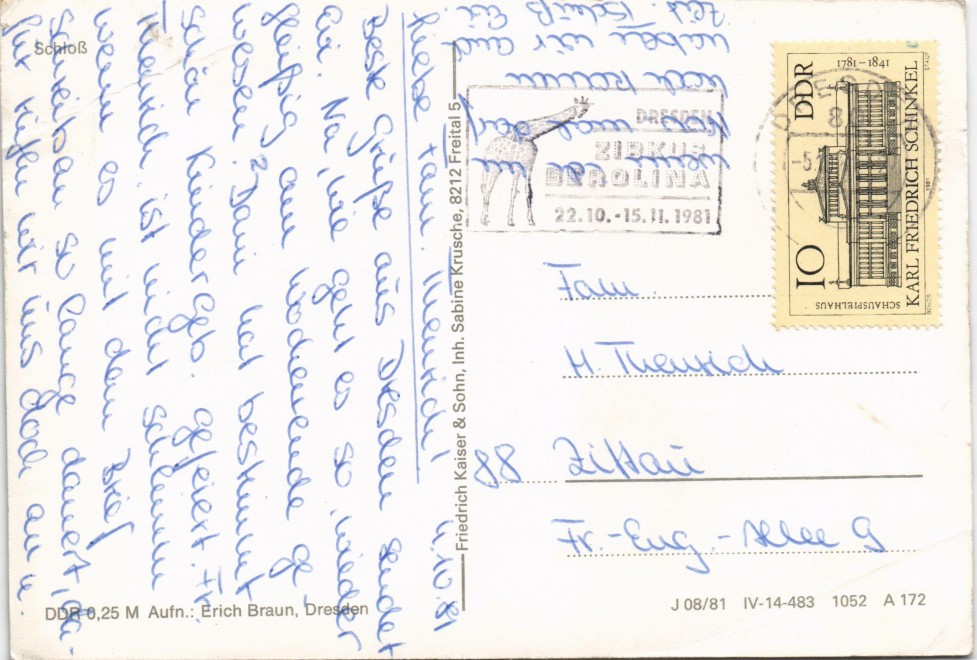 Schloß
4.10.81
Liebe Fam. Thenrich!
Beste Grüße aus Dresden sendet
Eu. Na, wie geht es so, wieder
fleißig am Wochenende ge-
wesen? Dani hat bestimmt
schön Kindergeb. gefeiert. Fr.
Thenrich, ist nicht schlimm
wenn es mit dem Brief
schreiben so lange dauert
Wir rufen wir uns doch an u.
wenn
Mal
haben wir auch
Tschüß Eu.
Friedrich Kaiser & Sohn, Inh. Sabine Krusche, 8212 Freital 5
DDR 0,25 M Aufn.: Erich Braun, Dresden
DRESDEN
ZIRKUS
BEROLINA
22.10.-15.11.1981
DDR
1781-1841
10
SCHAUSPIELHAUS
KARL FRIEDRICH SCHINKEL
Fam.
H. Thenrich
88 Zittau
Fr.-Eug.-Allee 9
J 08/81 IV-14-483 1052 A 172